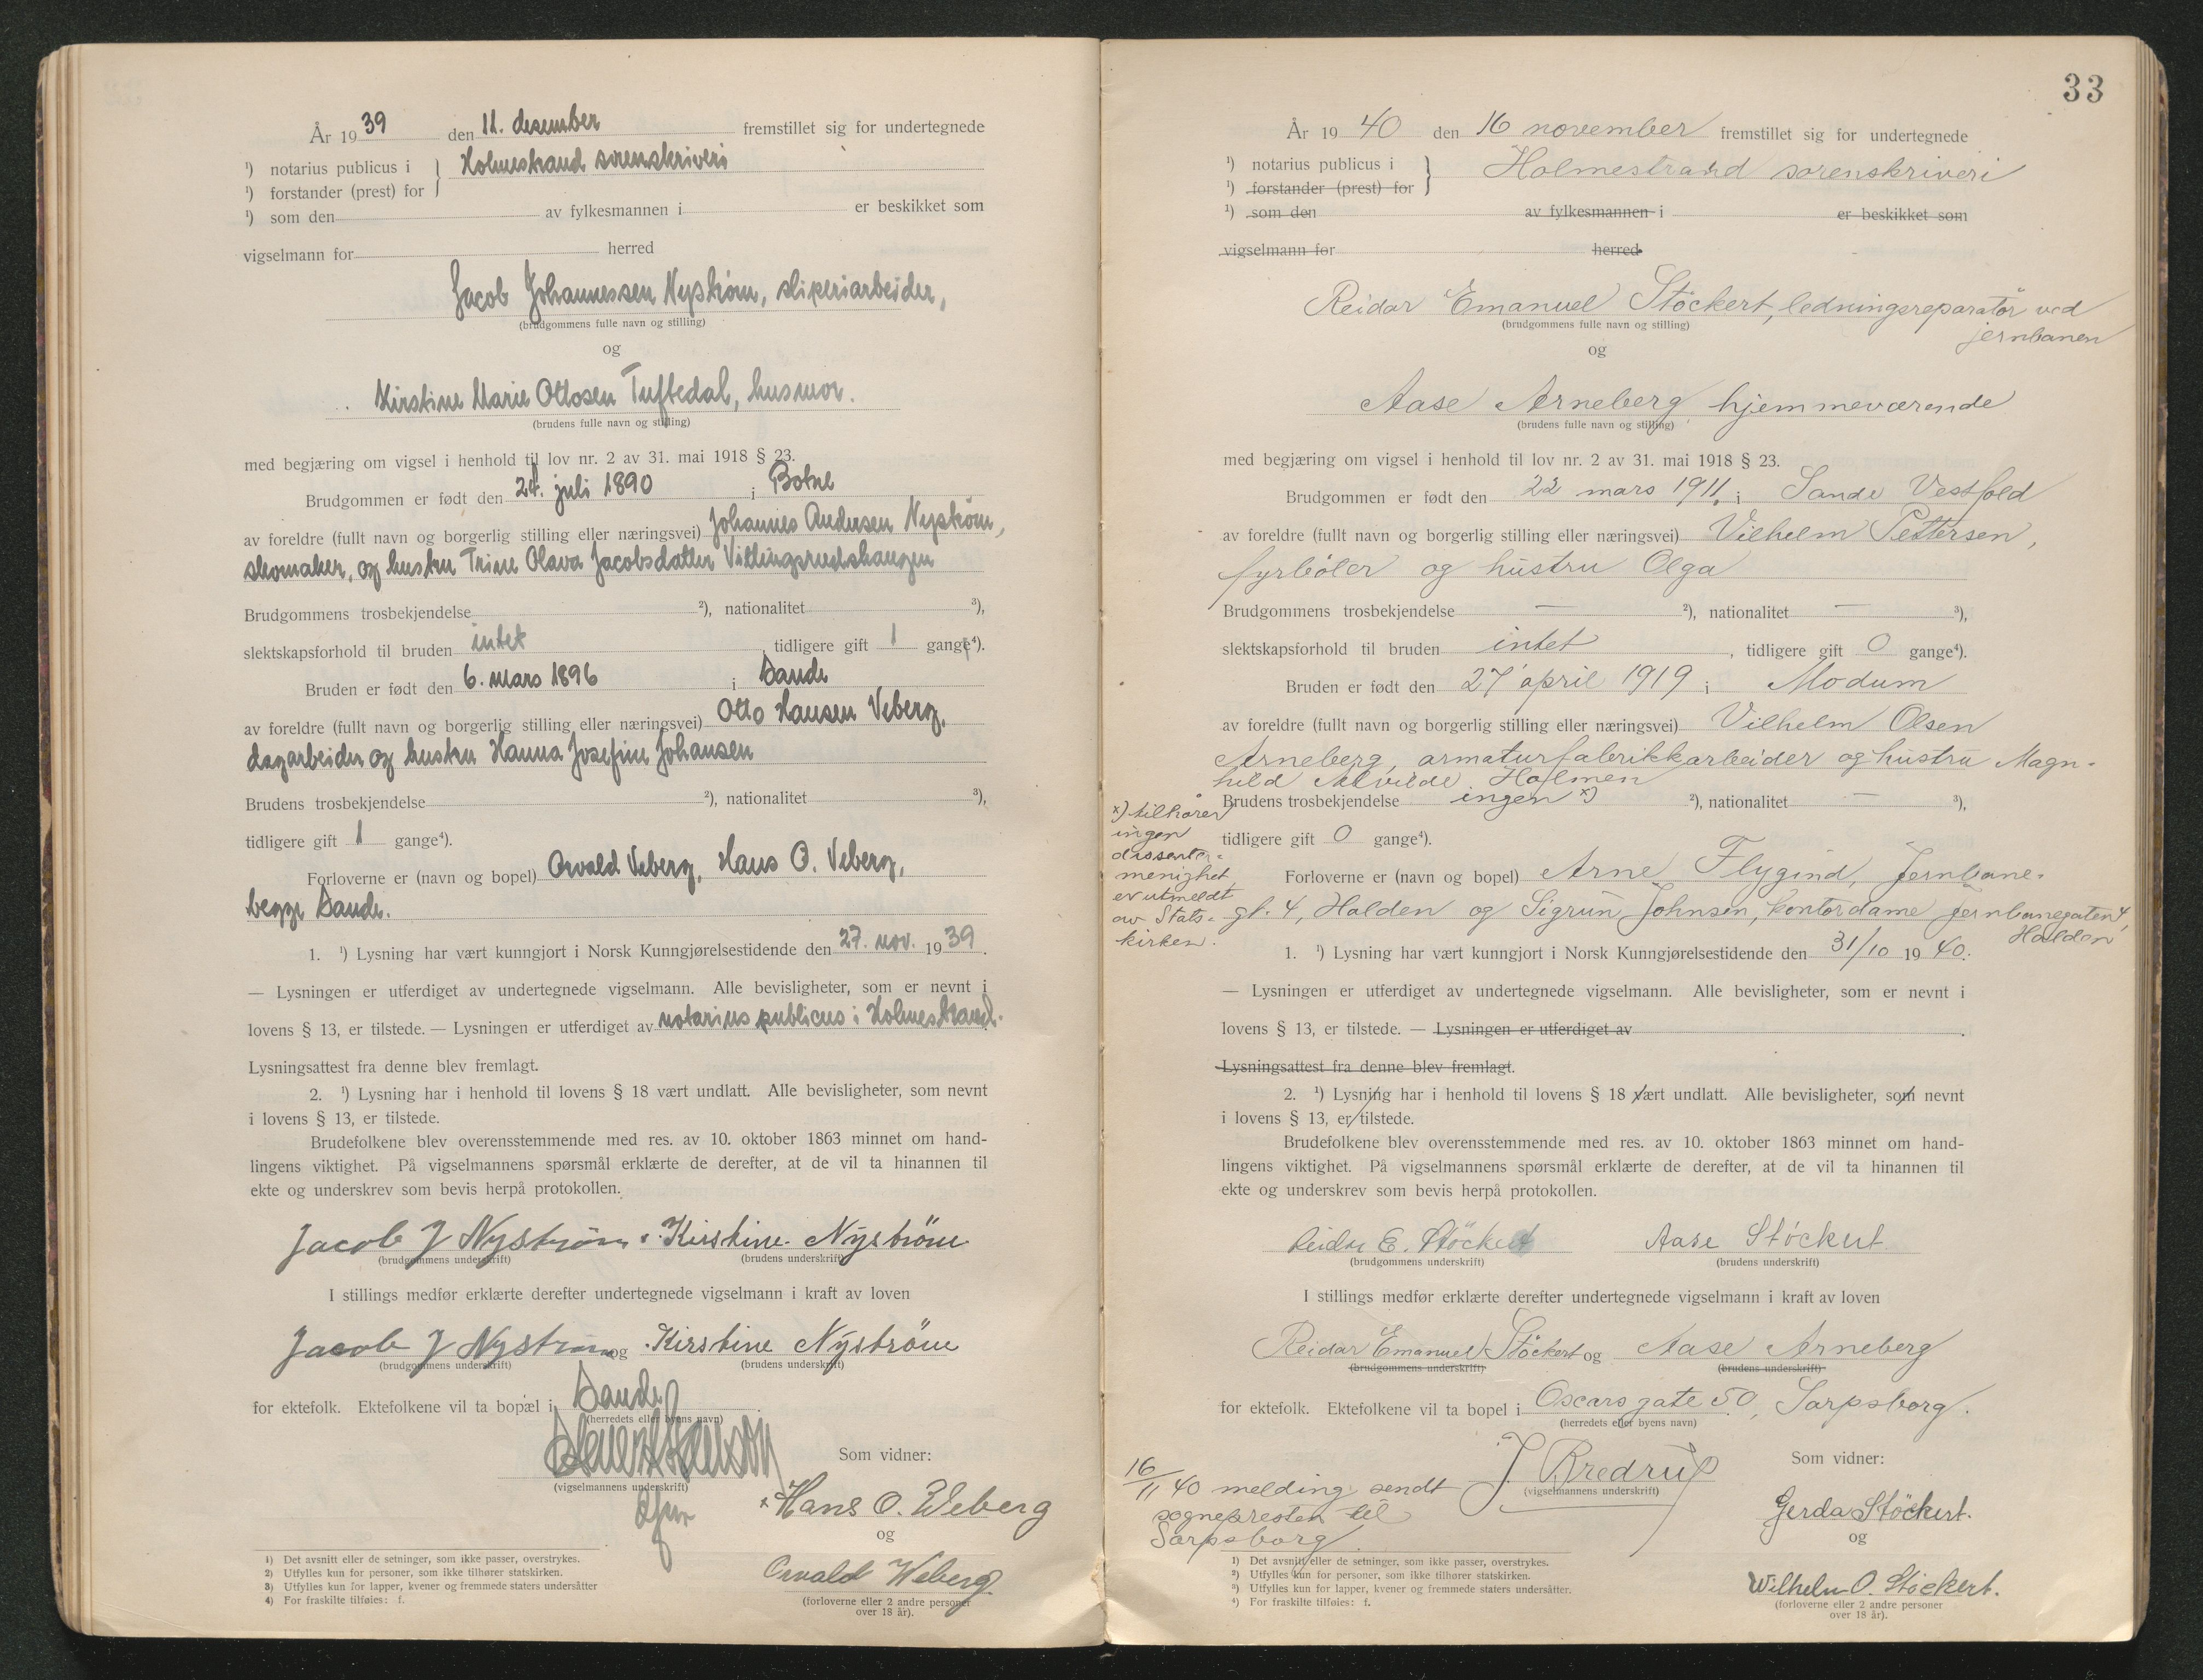 År 1939 den 11. desember fremstillet sig for undertegnede
¹) notarius publicus i } Holmestrand sorenskriveri
¹) forstander (prest) for
¹) som den av fylkesmannen i er beskikket som
vigselmann for herred
Jacob Johannessen Nystrøm, sliperiarbeider,
(brudgommens fulle navn og stilling)
og
Kirstine Marie Ottosen Tuftedal, husmor.
(brudens fulle navn og stilling)
med begjæring om vigsel i henhold til lov nr. 2 av 31. mai 1918 § 23.
Brudgommen er født den 24. juli 1890 i Botne
av foreldre (fullt navn og borgerlig stilling eller næringsvei) Johannes Andersen Nystrøm,
skomaker, og hustru Trine Olava Jacobsdatter Vittingsrudshaugen
Brudgommens trosbekjendelse ²), nationalitet ³),
slektskapsforhold til bruden intet, tidligere gift 1 gange⁴).
Bruden er født den 6. mars 1896 i Sande
av foreldre (fullt navn og borgerlig stilling eller næringsvei) Otto Hansen Veberg,
dagarbeider og hustru Hanna Josefine Johansen
Brudens trosbekjendelse ²), nationalitet ³),
tidligere gift 1 gange⁴).
Forloverne er (navn og bopel) Osvald Veberg, Hans O. Veberg,
begge Sande.
1. ¹) Lysning har vært kunngjort i Norsk Kunngjørelsestidende den 27. nov. 1939.
— Lysningen er utferdiget av undertegnede vigselmann. Alle bevisligheter, som er nevnt i
lovens § 13, er tilstede. — Lysningen er utferdiget av notarius publicus i Holmestrand.
Lysningsattest fra denne blev fremlagt.
2. ¹) Lysning har i henhold til lovens § 18 vært undlatt. Alle bevisligheter, som nevnt
i lovens § 13, er tilstede.
Brudefolkene blev overensstemmende med res. av 10. oktober 1863 minnet om hand-
lingens viktighet. På vigselmannens spørsmål erklærte de derefter, at de vil ta hinannen til
ekte og underskrev som bevis herpå protokollen.
Jacob J Nystrøm Kirstine Nyström
(brudgommens underskrift) (brudens underskrift)
I stillings medfør erklærte derefter undertegnede vigselmann i kraft av loven
Jacob J Nystrøm og Kirstine Nyström
(brudgommens underskrift) (brudens underskrift)
for ektefolk. Ektefolkene vil ta bopæl i Sande.
(herredets eller byens navn)
Som vidner:
(vigselmannens underskrift)
Hans O. Weberg
og
Osvald Weberg
(forloverne eller 2 andre personer
over 18 år).
1) Det avsnitt eller de setninger, som ikke passer, overstrykes.
2) Utfylles kun for personer, som ikke tilhører statskirken.
3) Utfylles kun for lapper, kvener og fremmede staters undersåtter
4) For fraskilte tilføies: f.
33
År 1940 den 16 november fremstillet sig for undertegnede
¹) notarius publicus i } Holmestrand sorenskriveri
¹) forstander (prest) for
¹) som den av fylkesmannen i er beskikket som
vigselmann for herred
Reidar Emanuel Stöckert, ledningsreparatör ved
jernbanen
(brudgommens fulle navn og stilling)
og
Aase Arneberg hjemmeværende
(brudens fulle navn og stilling)
med begjæring om vigsel i henhold til lov nr. 2 av 31. mai 1918 § 23.
Brudgommen er født den 22 mars 1911, i Sande Vestfold
av foreldre (fullt navn og borgerlig stilling eller næringsvei) Vilhelm Pettersen,
fyrbøter og hustru Olga
Brudgommens trosbekjendelse — ²), nationalitet — ³),
slektskapsforhold til bruden intet, tidligere gift 0 gange⁴).
Bruden er født den 27 april 1919 i Modum
av foreldre (fullt navn og borgerlig stilling eller næringsvei) Vilhelm Olsen
Arneberg, armaturfabrikkarbeider og hustru Magn-
hild Alvilde Holmen
Brudens trosbekjendelse ingen x) ²), nationalitet — ³),
x) tilhører
ingen
dissenter-
menighet
er utmeldt
av Stats-
kirken.
tidligere gift 0 gange⁴).
Forloverne er (navn og bopel) Arne Flygind, Jernbane-
gt. 4, Halden og Sigrun Johnsen, kontordame Jernbanegaten 4,
Halden
1. ¹) Lysning har vært kunngjort i Norsk Kunngjørelsestidende den 31/10 1940.
— Lysningen er utferdiget av undertegnede vigselmann. Alle bevisligheter, som er nevnt i
lovens § 13, er tilstede. — Lysningen er utferdiget av .
Lysningsattest fra denne blev fremlagt.
2. ¹) Lysning har i henhold til lovens § 18 vært undlatt. Alle bevisligheter, som nevnt
i lovens § 13, er tilstede.
Brudefolkene blev overensstemmende med res. av 10. oktober 1863 minnet om hand-
lingens viktighet. På vigselmannens spørsmål erklærte de derefter, at de vil ta hinannen til
ekte og underskrev som bevis herpå protokollen.
Reidar E. Stöckert Aase Stöckert
(brudgommens underskrift) (brudens underskrift)
I stillings medfør erklærte derefter undertegnede vigselmann i kraft av loven
Reidar Emanuel Stöckert og Aase Arneberg
(brudgommens underskrift) (brudens underskrift)
for ektefolk. Ektefolkene vil ta bopel i Oscarsgate 50, Sarpsborg.
(herredets eller byens navn)
Som vidner:
J. Bredrup
(vigselmannens underskrift)
16/11 40 melding sendt
sognepresten til
Sarpsborg.
Gerda Stöckert.
og
Wilhelm O. Stöckert.
(forloverne eller 2 andre personer
over 18 år).
¹) Det avsnitt eller de setninger, som ikke passer, overstrykes.
²) Utfylles kun for personer, som ikke tilhører statskirken.
³) Utfylles kun for lapper, kvener og fremmede staters undersåtter.
⁴) For fraskilte tilføies: f.